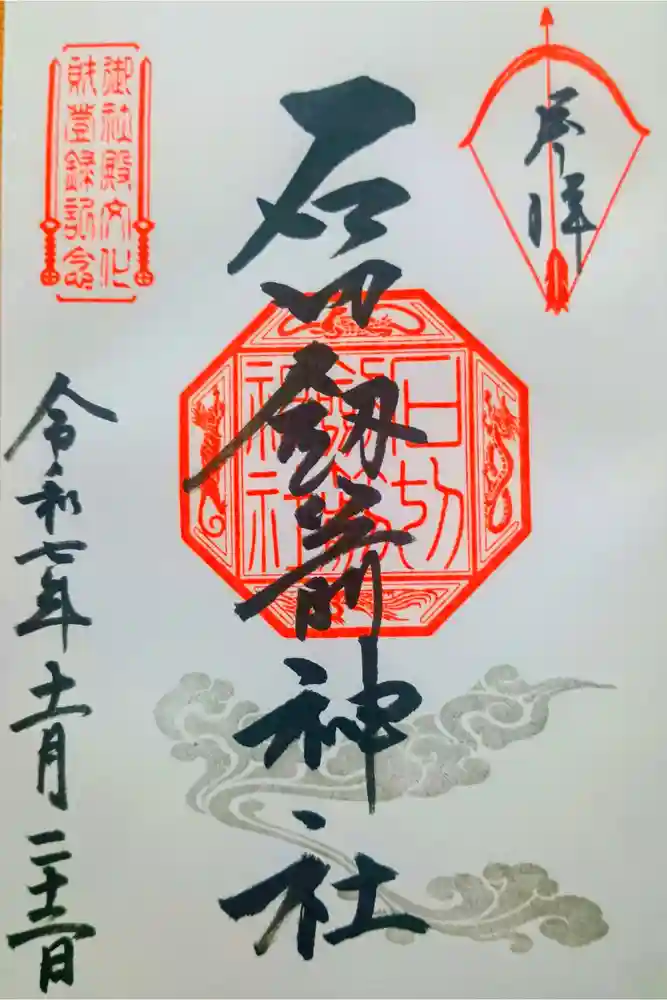 奉拝
石切劔箭神社
石切
劔箭
神社
御社殿文化
財登録記念
令和七年十一月二十二日